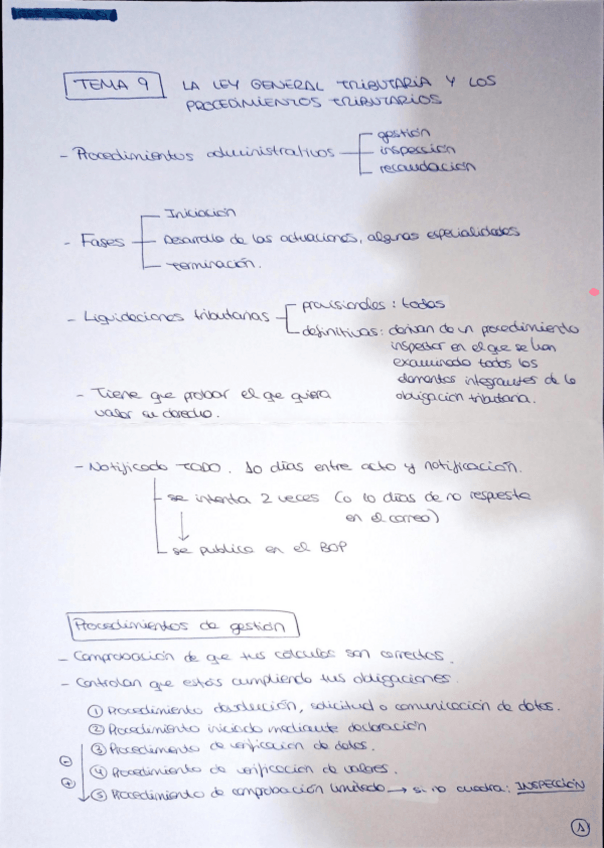 TEMA 9 LA LEY GENERAL TRIBUTARIA Y LOS
PROCEDIMIENTOS TRIBUTARIOS
- Procedimientos administrativos
gestión
inspección
recaudación
- Fases
Iniciación
Desarrollo de las actuaciones, algunas especialidades
terminación.
- Liquidaciones tributarias
provisionales: todas
definitivas: derivan de un procedimiento
inspector en el que se han
examinado todos los
elementos integrantes de la
obligación tributaria.
- Tiene que probar el que quiera
valer su derecho.
- Notificado TODO. 10 días entre acto y notificación.
se intenta 2 veces (o 10 días de no respuesta
en el correo)
↓
se publica en el BOP
Procedimientos de gestión
- Comprobación de que tus cálculos son correctos.
- Controlan que estás cumpliendo tus obligaciones.
① Procedimiento devolución, solicitud o comunicación de datos.
② Procedimiento iniciado mediante declaración
③ Procedimiento de verificación de datos.
④ Procedimiento de verificación de valores.
⑤ Procedimiento de comprobación limitada → si no cuadra: INSPECCIÓN
⊖
⊕
①